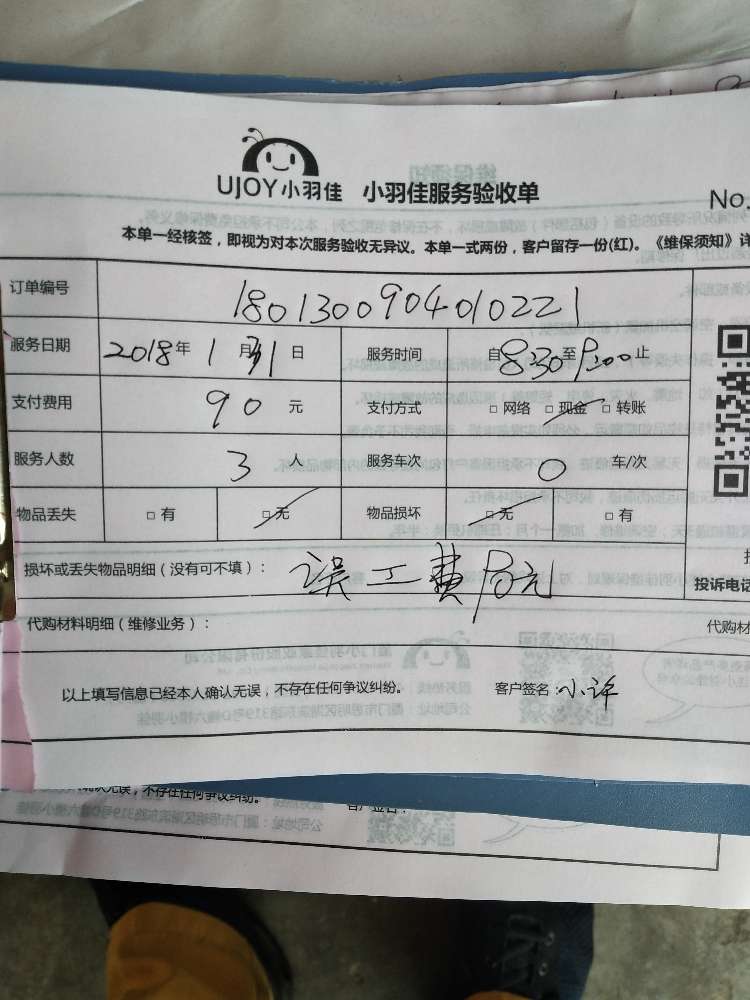 UJOY小羽佳 小羽佳服务验收单
No.
本单一经核签，即视为对本次服务验收无异议。本单一式两份，客户留存一份(红)。《维保须知》详
订单编号 180130090401022​1
服务日期 2018年1月31日 服务时间 自8:30至9:00止
支付费用 90元 支付方式 □网络 □现金 □转账
服务人数 3人 服务车次 0车/次
物品丢失 □有 □无 物品损坏 □无 □有
损坏或丢失物品明细（没有可不填）： 误工费
投诉电话
代购材料明细（维修业务）： 代购材
以上填写信息已经本人确认无误，不存在任何争议纠纷。 客户签名：小许
不存在任何争议纠纷。